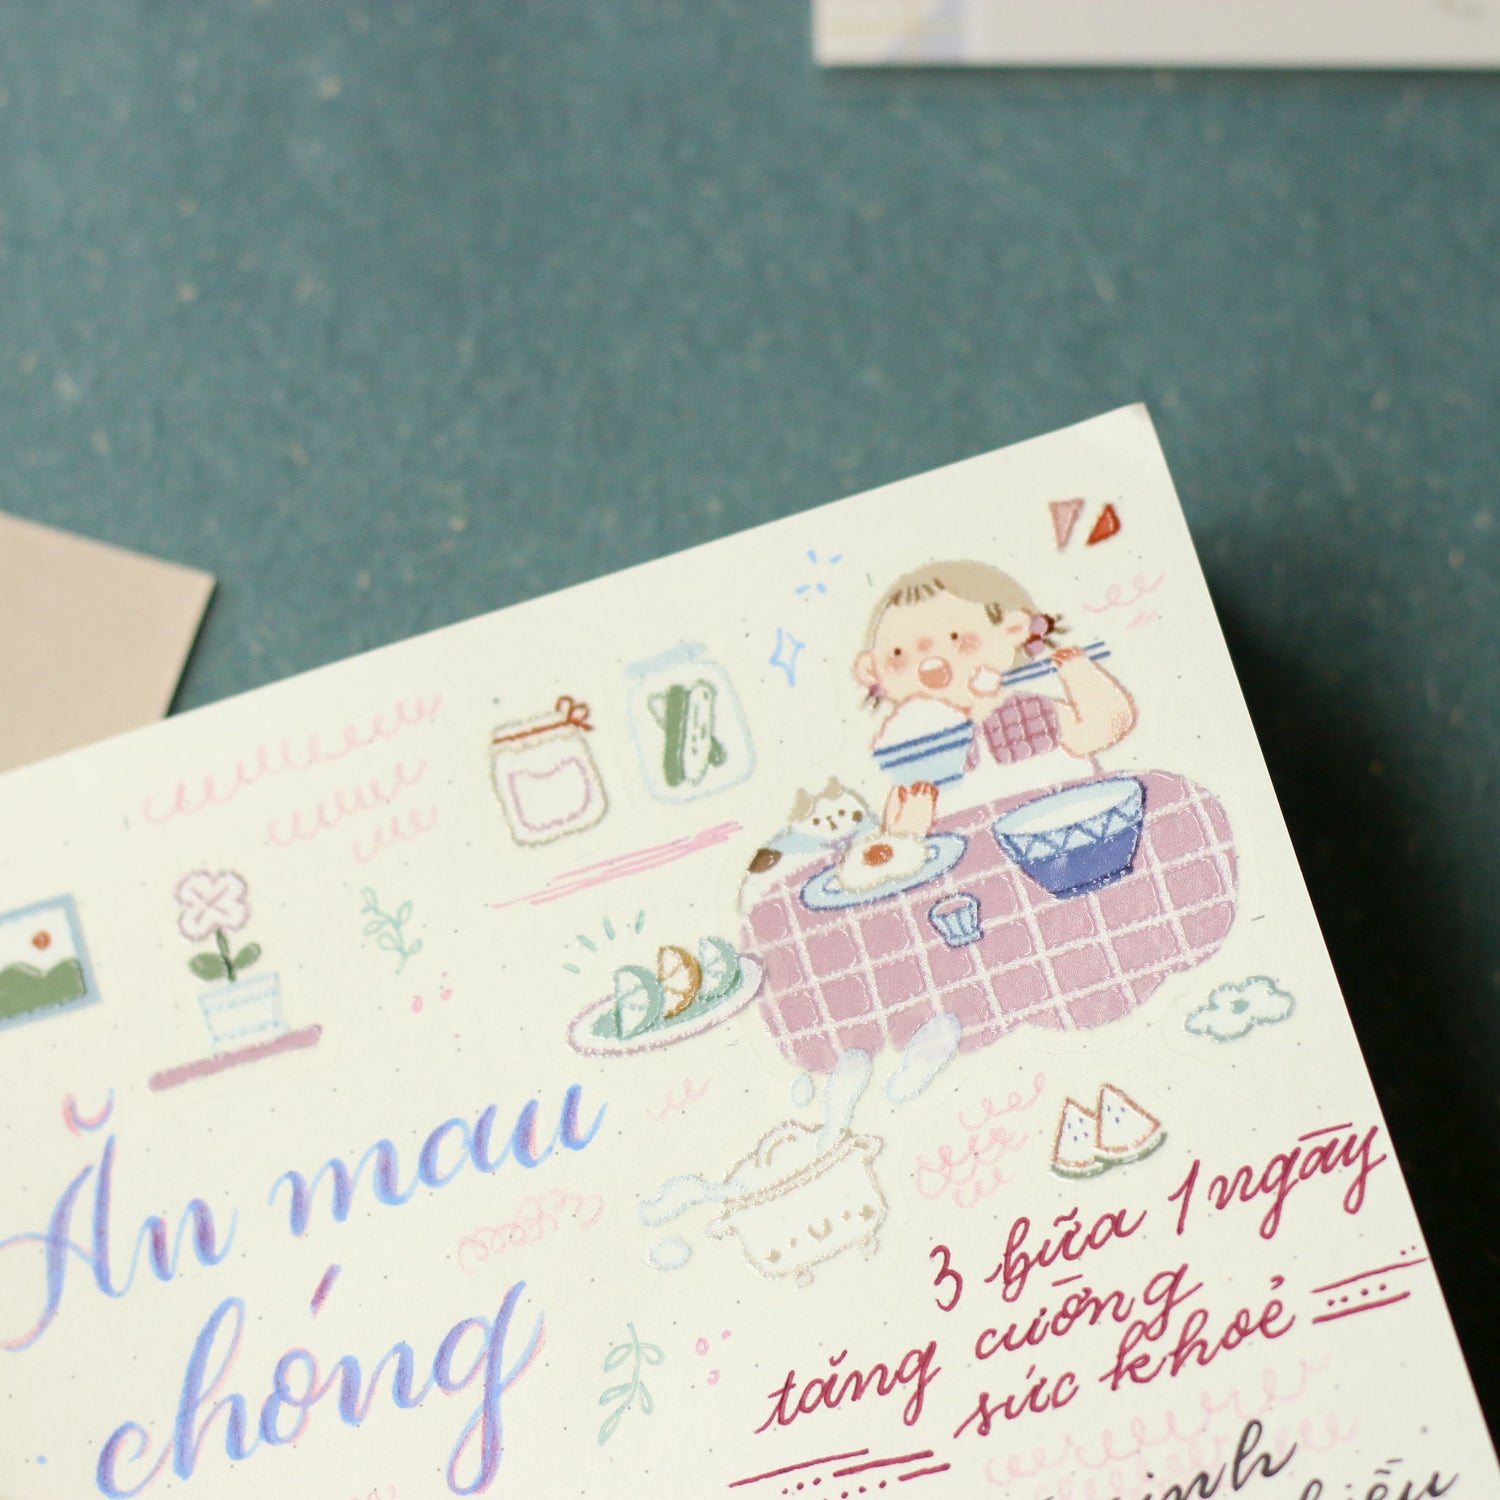 Ăn mau
chóng
3 bữa 1 ngày
tăng cường
sức khoẻ